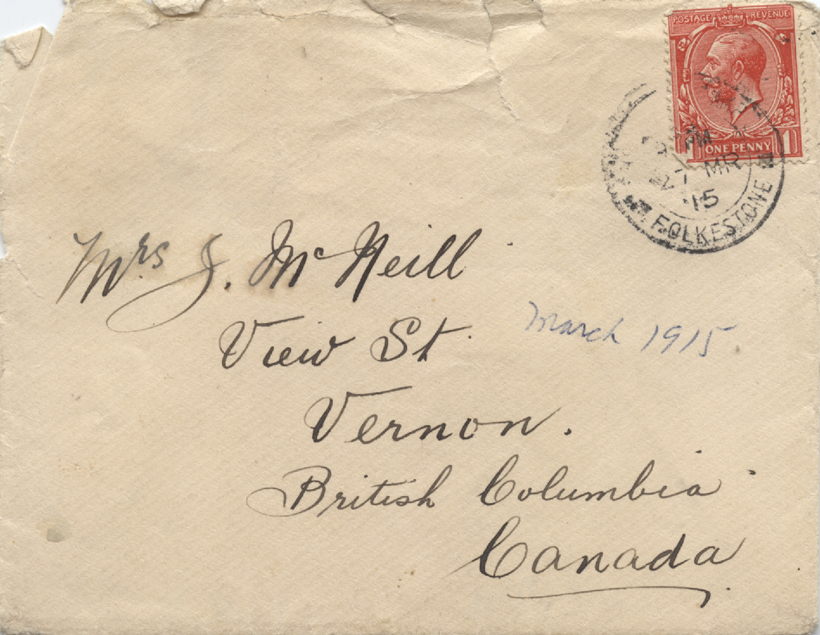 POSTAGE REVENUE
ONE PENNY 1
PM
MR
15
FOLKESTONE
Mrs J. Mc Neill
View St.
March 1915
Vernon.
British Columbia
Canada